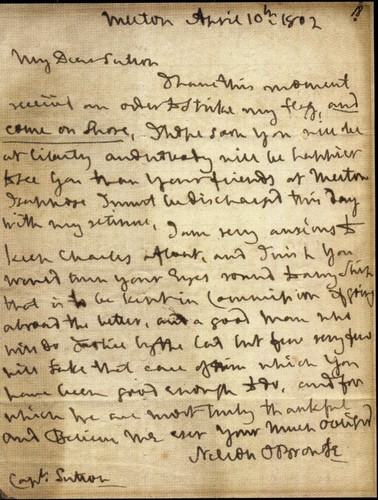 Merton April 10th: 1802
My Dear Sutton
I have this moment
received an order to strike my flag, and
come on shore, I hope soon you will be
at liberty and nobody will be happier
to see you than your friends at Merton
I suppose I must be discharged this day
with my retinue, I am very anxious to
keep Charles afloat, and I wish you
would turn your Eyes round to any ship
that is to be kept in Commission if going
abroad the better, and a good man who
will do Justice by the Lad but few very few
will take that care of him which you
have been good enough to do, and for
which we are most truly thankful
and Believe me ever your much obliged
Nelson & Bronte
Capt: Sutton